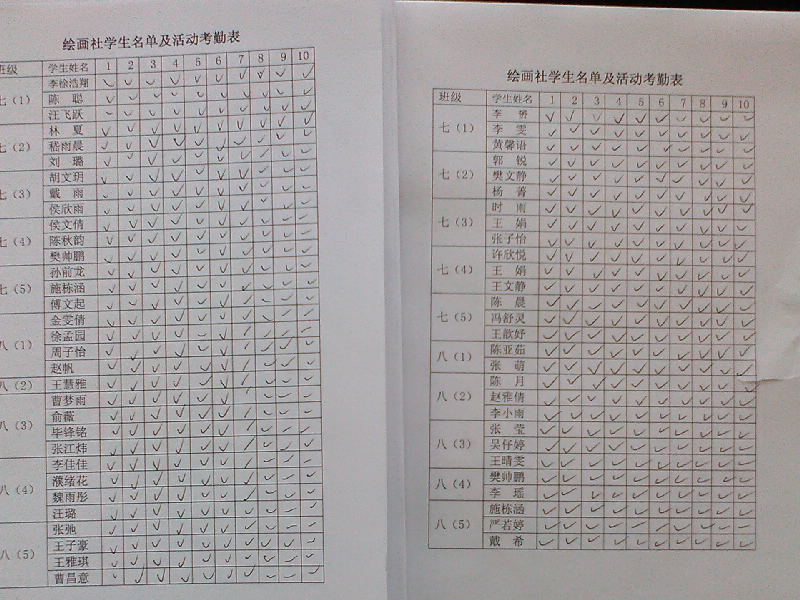 绘画社学生名单及活动考勤表
班级 学生姓名 1 2 3 4 5 6 7 8 9 10
李徐浩翔
七（1） 陈 聪
汪飞跃
林 夏
七（2） 嵇雨晨
刘 璐
胡文玥
七（3） 戴 雨
侯欣雨
侯文倩
七（4） 陈秋韵
樊帅鹏
孙前龙
七（5） 施栋涵
傅文起
金雯倩
徐孟园
八（1） 周子怡
赵帆
八（2） 王慧雅
曹梦雨
八（3） 俞薇
毕锋铭
张江炜
李佳佳
八（4） 濮绪花
魏雨彤
汪璐
张弛
八（5） 王子豪
王雅琪
曹昌意
绘画社学生名单及活动考勤表
班级 学生姓名 1 2 3 4 5 6 7 8 9 10
李
七（1） 李 雯
黄馨语
郭 锐
七（2） 樊文静
杨 菁
时 雨
七（3） 王 娟
张子怡
许欣悦
七（4） 王 娟
王文静
陈 晨
七（5） 冯舒灵
王歆妤
八（1） 陈亚茹
张 萌
陈 月
八（2） 赵雅倩
李小雨
张 莹
八（3） 吴仔婷
王晴雯
八（4） 樊帅鹏
李 瑶
施栋涵
八（5） 严若婷
戴 希